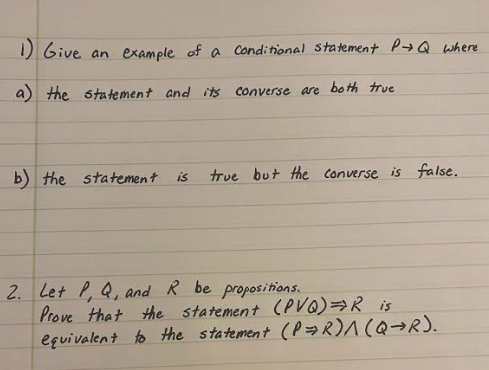 1) Give an example of a conditional statement P→Q where
a) the statement and its converse are both true
b) the statement is true but the converse is false.
2. Let P, Q, and R be propositions.
Prove that the statement (P∨Q)⇒R is
equivalent to the statement (P⇒R)∧(Q→R).